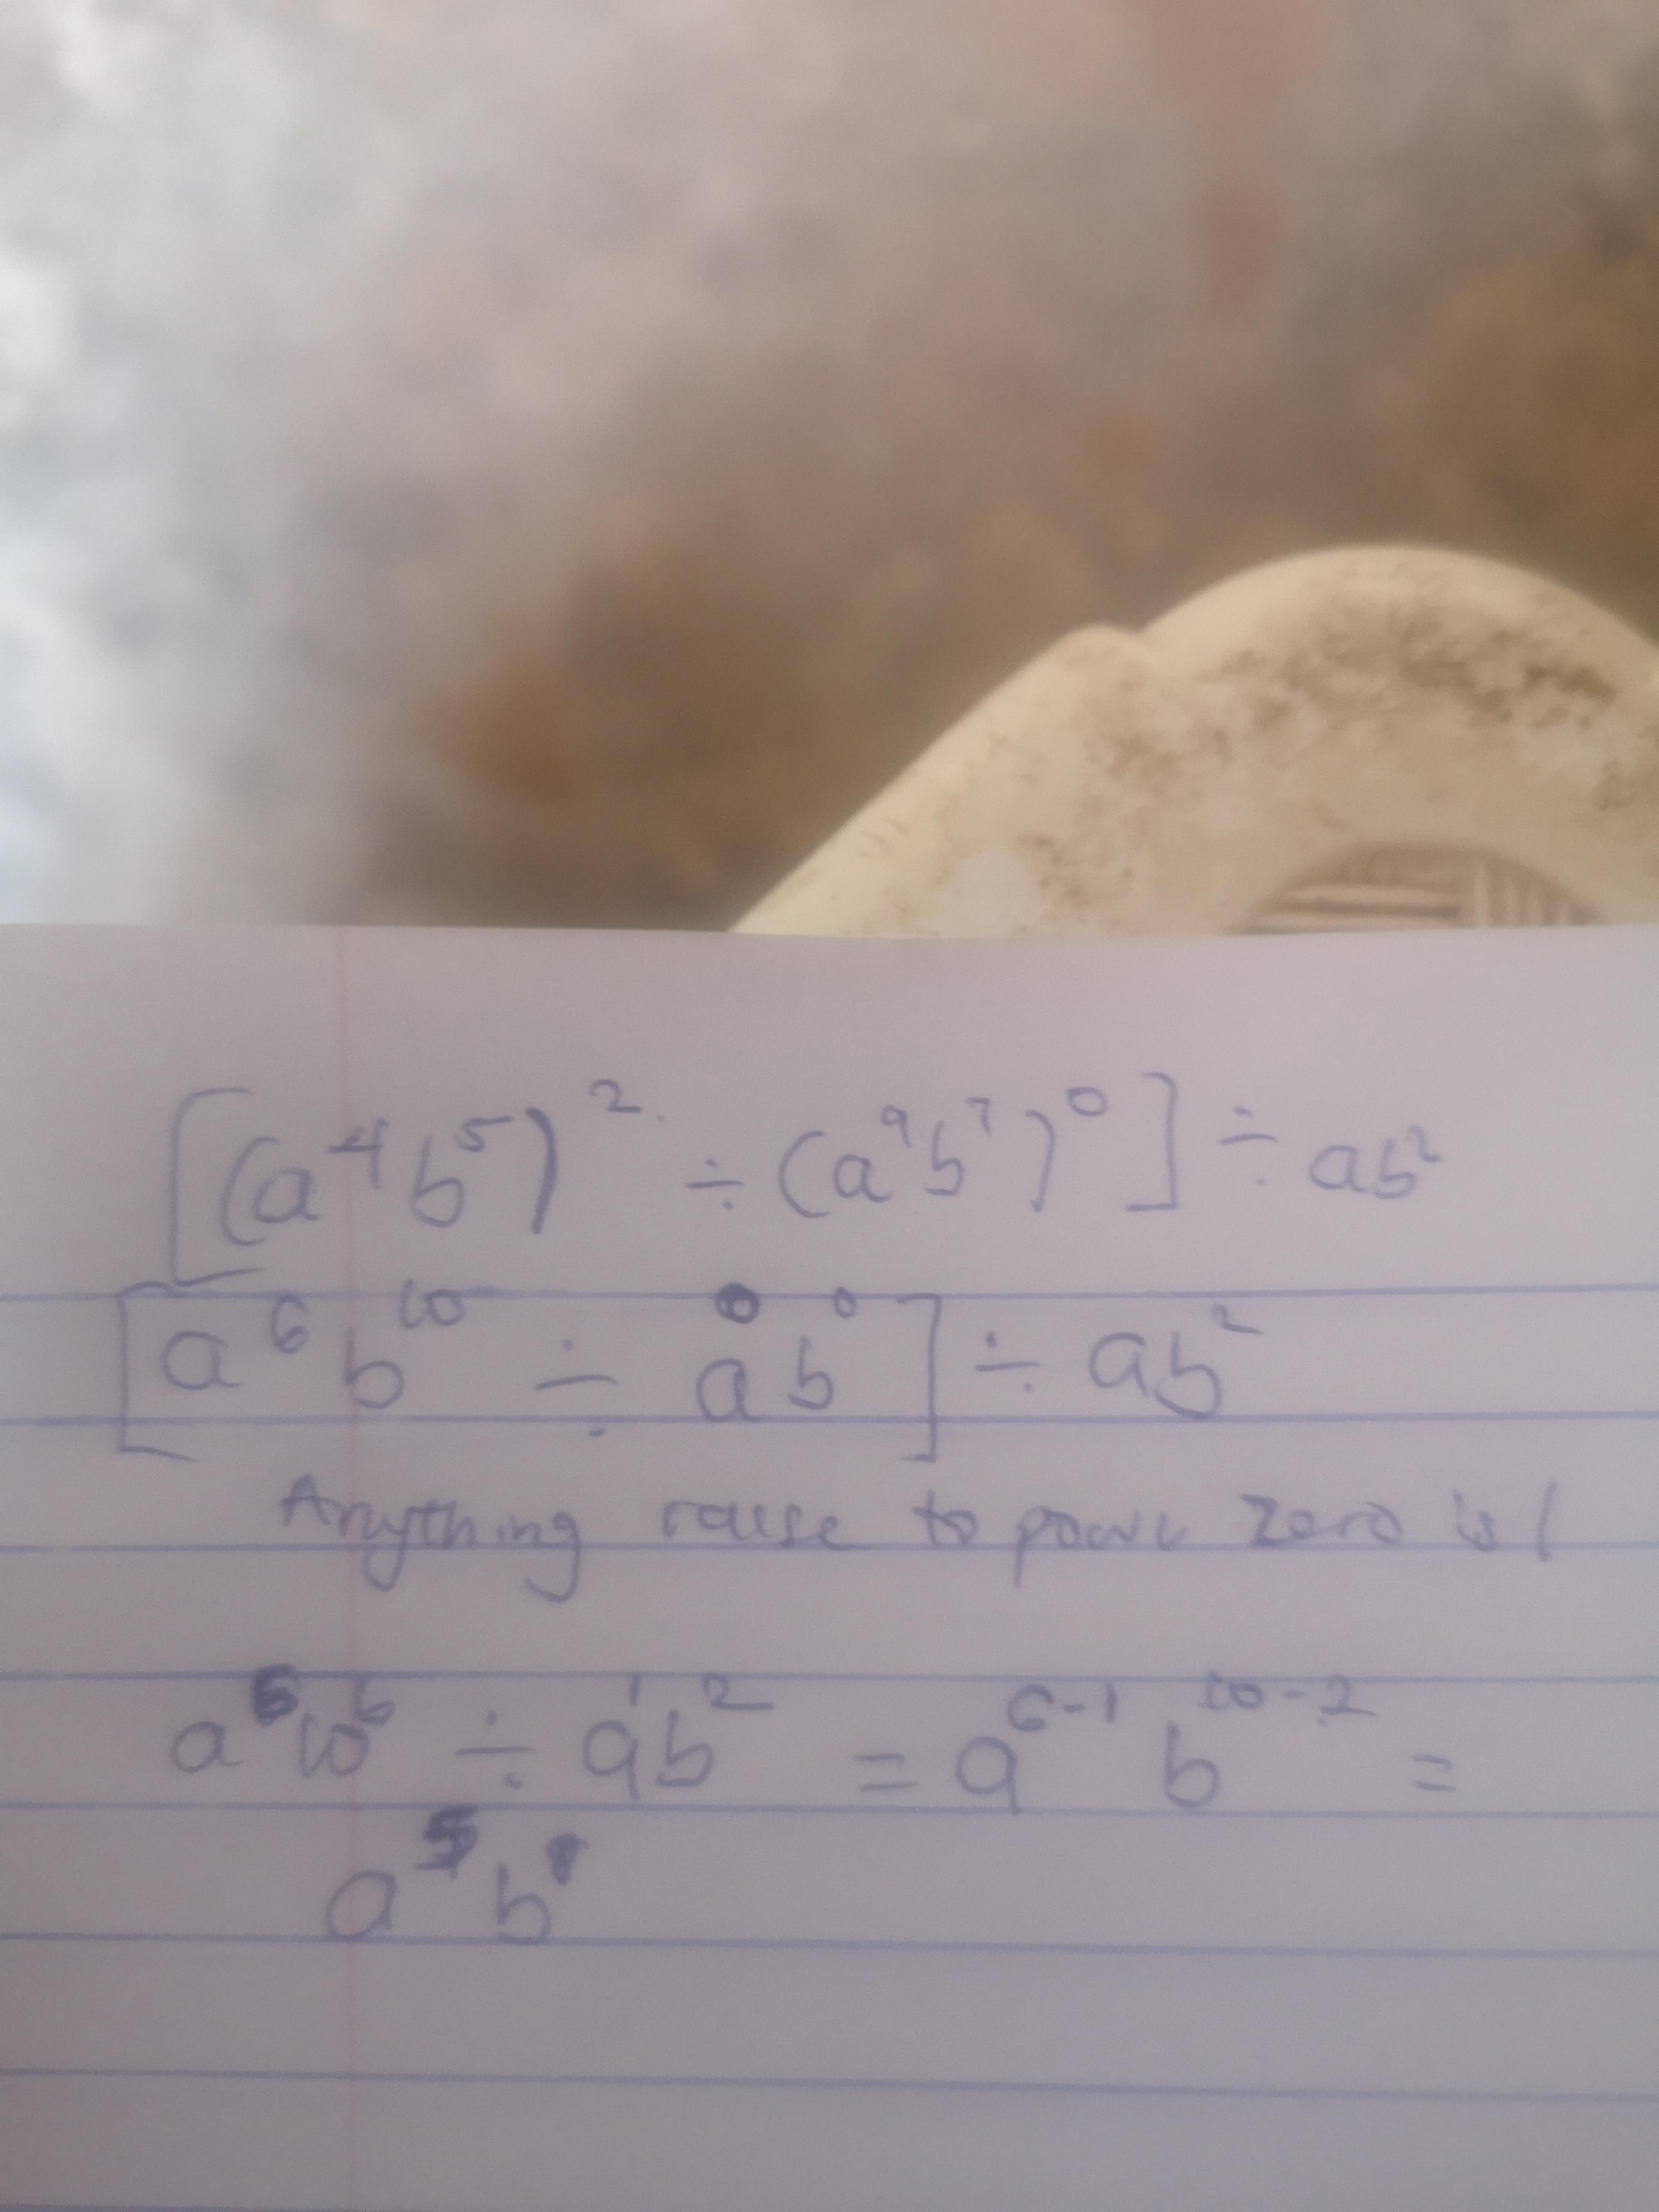 [(a⁴b⁵)² ÷ (a⁹b⁷)⁰] ÷ ab²
[a⁶b¹⁰ ÷ a⁰b⁰] ÷ ab²
Anything raise to power zero is 1
a⁶10⁶ ÷ a¹b² = a⁶⁻¹ b¹⁰⁻² =
a⁵b⁸